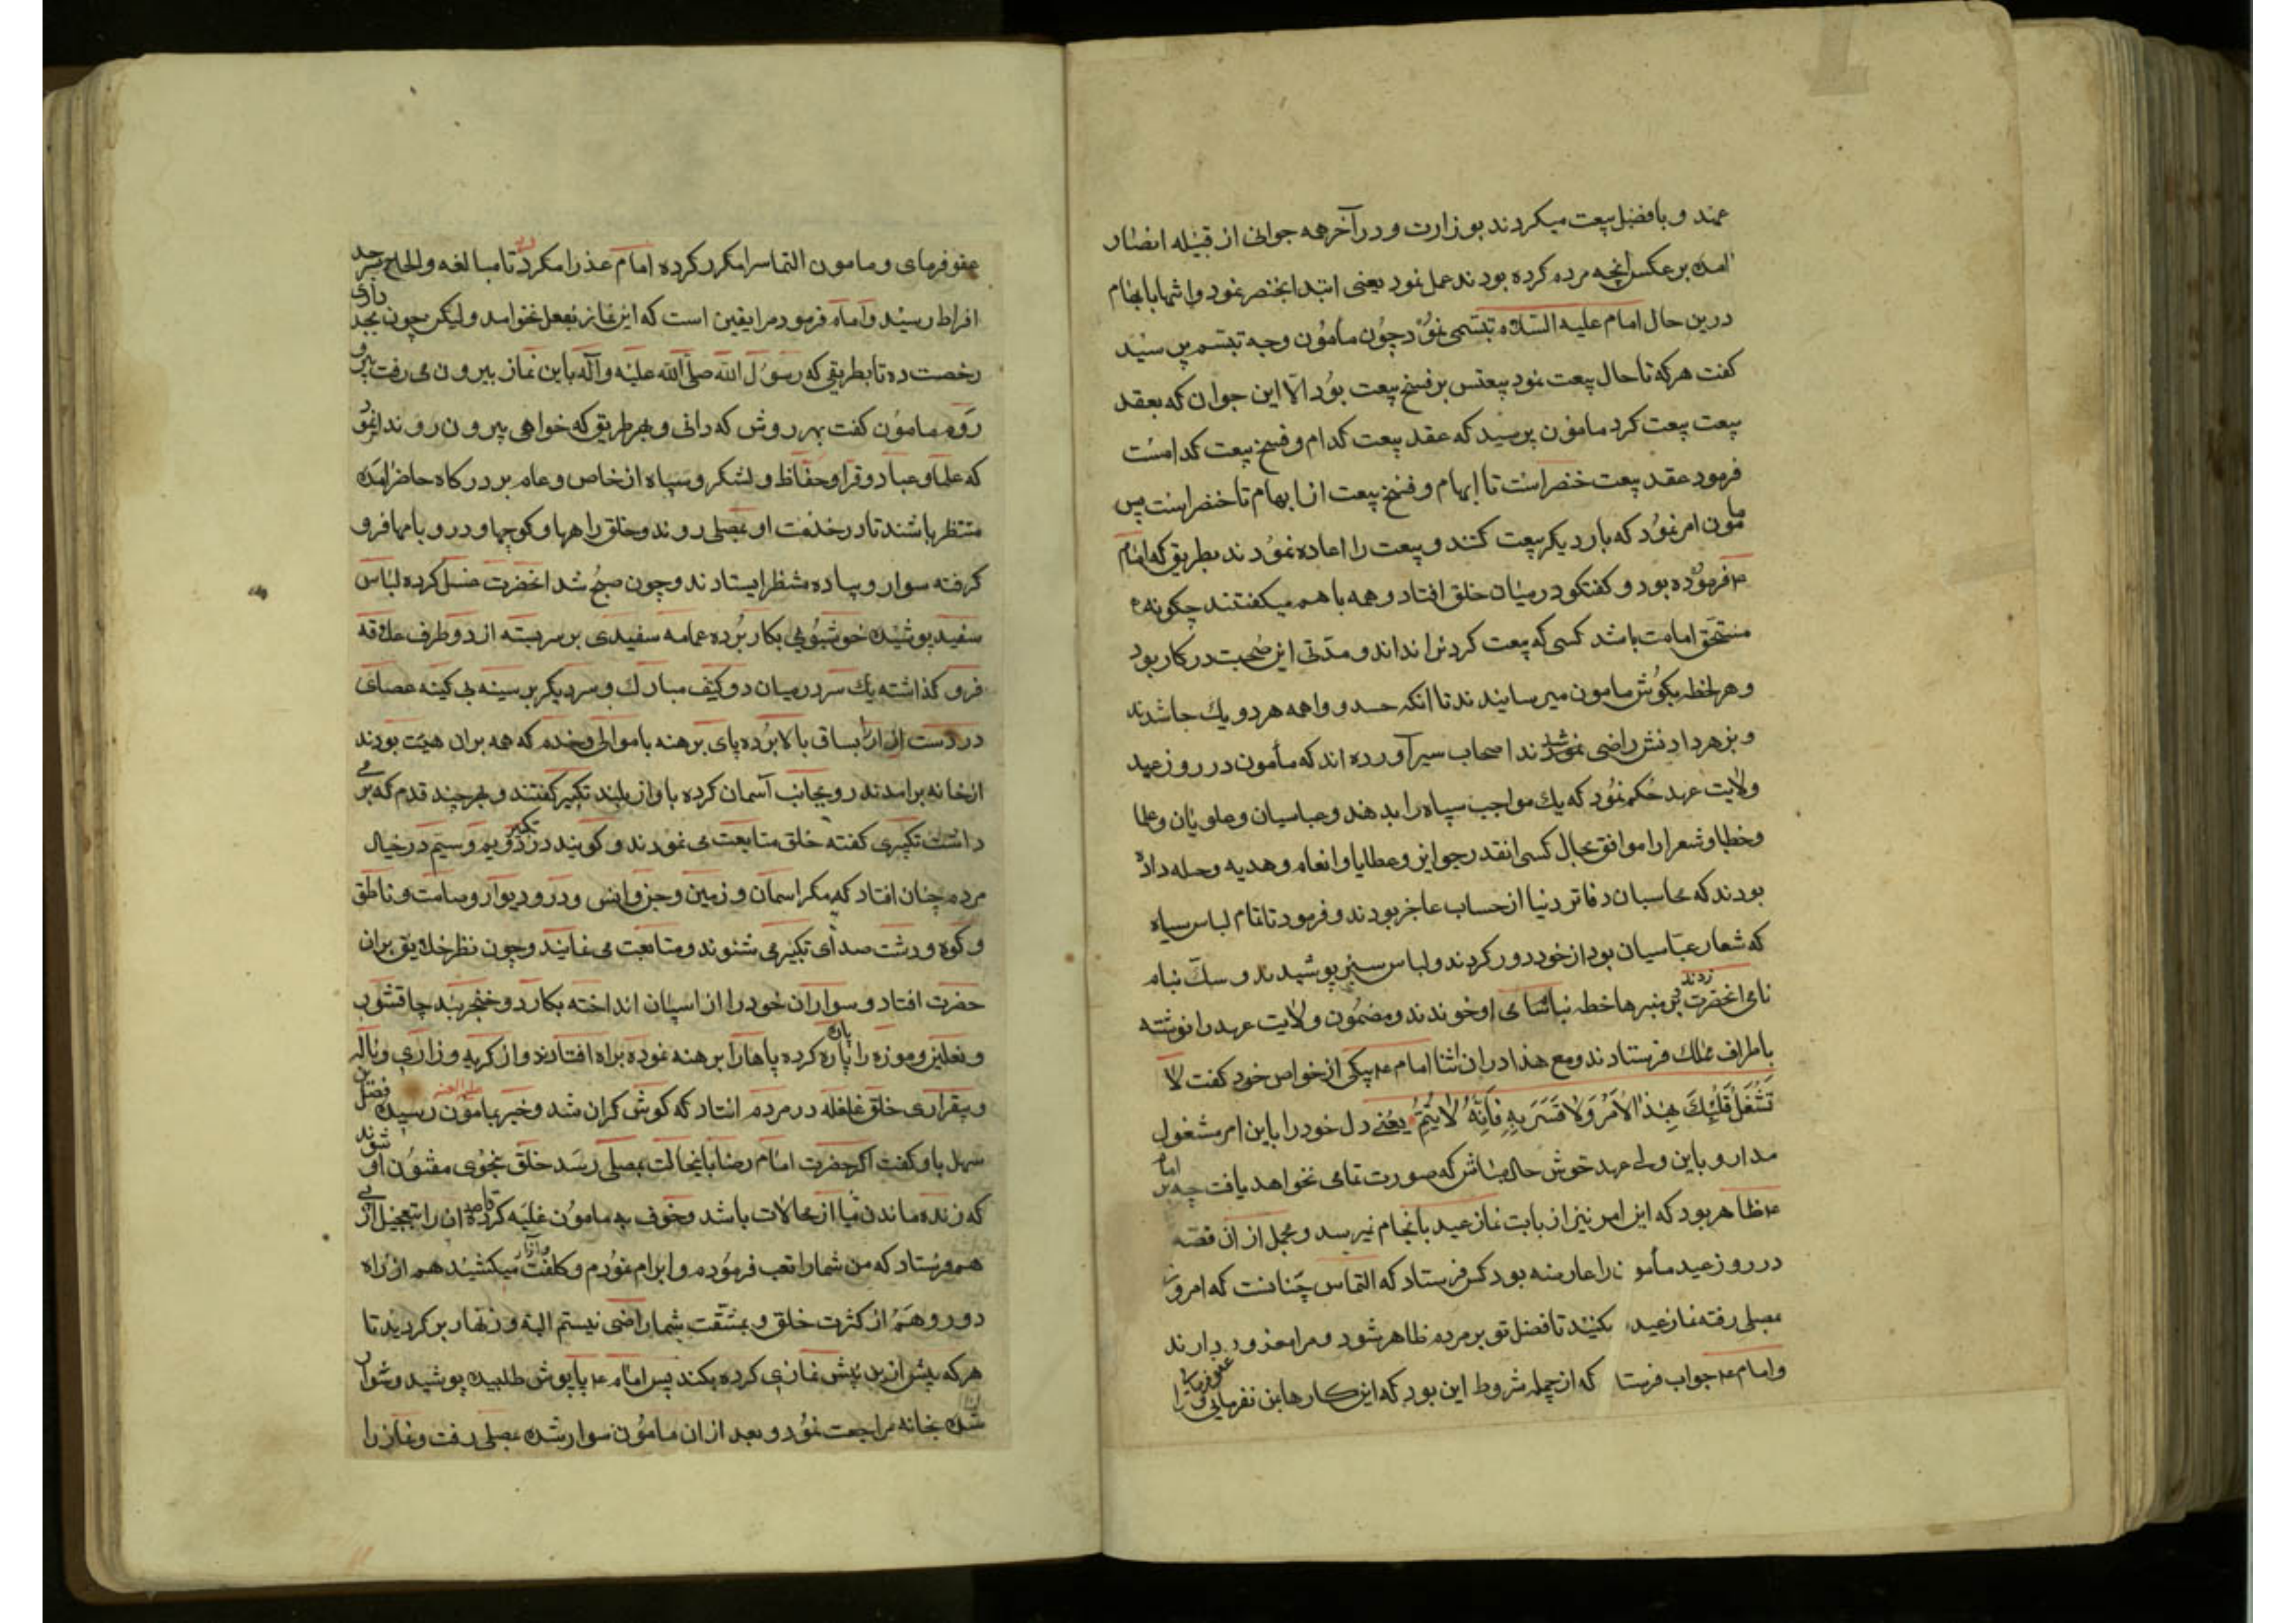 عهد و با فضل بیعت میکردند بوزارت و در آخر همه جوانی از قبیله انصار
امده بر عکس آنچه مردم کرده بودند عمل نمود یعنی ابتدا بخنصر نمود و انتها بابهام
درین حال امام علیه السلام تبسمی نمود چون مأمون وجه تبسم پرسید
کفت هرکه تا حال بیعت نمود بیعتش بر فسخ بیعت بود الا این جوان که بعقد
بیعت بیعت کرد مامون پرسید که عقد بیعت کدام و فسخ بیعت کدامست
فرمود عقد بیعت خنصر است تا ابهام و فسخ بیعت از ابهام تا خنصر است پس
مامون امر نمود که بار دیکر بیعت کنند و بیعت را اعاده نمودند بطریق که امام
ع فرموده بود و کفتکو در میان خلق افتاد و همه با هم میکفتند چکونه
مستحق امامت باشد کسی که بیعت کردن را نداند و مدتی این صحبت در کار بود
و هر لحظه بکوش مامون میرسانیدند تا آنکه حسد و واهمه هر دو یك جا شدند
و بزهر دادنش راضی شدند اصحاب سیر آورده اند که مأمون در روز عید
ولایت عهد حکم نمود که یك مواجب سپاه را بدهند و عباسیان و علویان و علما
و خطبا و شعرا را موافق بحال کسی انقدر جوایز و عطایا و انعام و هدیه و حله داده
بودند که محاسبان دفاتر دنیا از حساب عاجز بودند و فرمود تا تمام لباس سیاه
که شعار عباسیان بود از خود دور کردند و لباس سبز پوشیدند و سکه بنام
نامی انحضرت زدند بر منبرها خطبه بنام او خوندند و مضمون ولایت عهد را نوشته
باطراف ممالك فرستادند و مع هذا در ان اثنا امام ع بیکی از خواص خود کفت لا
تَشْغَلْ قَلْبَكَ بِهذَا الاَمْرِ وَلا تَسَرَّ بِهِ فَاِنَّهُ لا يُتِمُّ یعنی دل خود را باین امر مشغول
مدار و باین ولی عهد خوش حال مباش که صورت تمامی نخواهد یافت چه بر امام
ع ظاهر بود که این امر نیز از بابت نماز عید بانجام نمیرسد و مجمل از ان قصه
در روز عید مأمون را عارضه بود کس فرستاد که التماس چنانست که امروز
بمصلی رفته نماز عید بکنید تا فضل تو بر مردم ظاهر شود و مرا معذور دارند
و امام ع جواب فرستاد که از جمله شروط این بود که این کارها بمن نفرمایی و مرا عفو فرمایی
عفو فرمای و مامون التماس را مکرر کرده امام عذر را مکرر کرد تا مبالغه و الحاح بسرحد
افراط رسید و امام فرمود مرا یقین است که این نماز بفعل نخواهد آمد و لیکن چون بجد داری
رخصت ده تا بطریقی که رسول الله صلی الله علیه وآله باین نماز بیرون می رفت بیرون
روم مامون کفت بهر روش که دانی و بهر طریق که خواهی بیرون روند امر نمود
که علما و عباد و قرا و حفاظ و لشکر و سپاه از خاص و عام بر درکاه حاضر امده
منتظر باشند تا در خدمت او بمصلی روند و خلق راهها و کوچها و در و بامها فرو
کرفته سوار و پیاده منتظر ایستادند و چون صبح شد انحضرت غسل کرده لباس
سفید پوشیده خوشبویی بکار برده عمامه سفیدی بر سر بسته از دو طرف علاقه
فرو کذاشته یك سر در میان دو کتف مبارك و سر دیکر بر سینه بی کینه عصای
در دست ازار را بساق بالا برده پای برهنه با موالی و خدم که همه بران هیئت بودند
از خانه برامدند رو بجانب آسمان کرده باواز بلند تکبیر کفتند و بهر چند قدم که بر می
داشت تکبیری کفته خلق متابعت می نمودند و کویند در تکبیر دویم و سیم در خیال
مردم چنان افتاد که مکر اسمان و زمین و جن و انس و در و دیوار و صامت و ناطق
و کوه و دشت صدای تکبیر می شنوند و متابعت می نمایند و چون نظر خلایق بران
حضرت افتاد و سواران خود را از اسپان انداخته بکارد و خنجر بند چاقشور
و نعلین و موزه را پاره پاره کرده پاها را برهنه نموده براه افتادند و از کریه و زاری و ناله
و بیقراری خلق غلغله در مردم افتاد که کوش کران شد و خبر بمامون علیه العنه رسید فضل بن
سهل باو کفت اکر حضرت امام رضا باینحالت بمصلی رسد خلق بنحوی مفتون او شوند
که زنده ماندن ما از محالات باشد و خوف بر مامون غلبه کرده قاصدان را بتعجیل از پی
هم فرستاد که من شما را تعب فرمودم و ابرام نمودم و کلفت و آزار میکشید هم از راه
دور و هم از کثرت خلق و بمشقت شما راضی نیستم البته و زنهار برکردید تا
هرکه پیش ازین پیش نمازی کرده بکند پس امام ع پاپوش طلبیده پوشید و سوار
شده بخانه مراجعت نمود و بعد از ان مامون سوار شده بمصلی رفت و نماز را